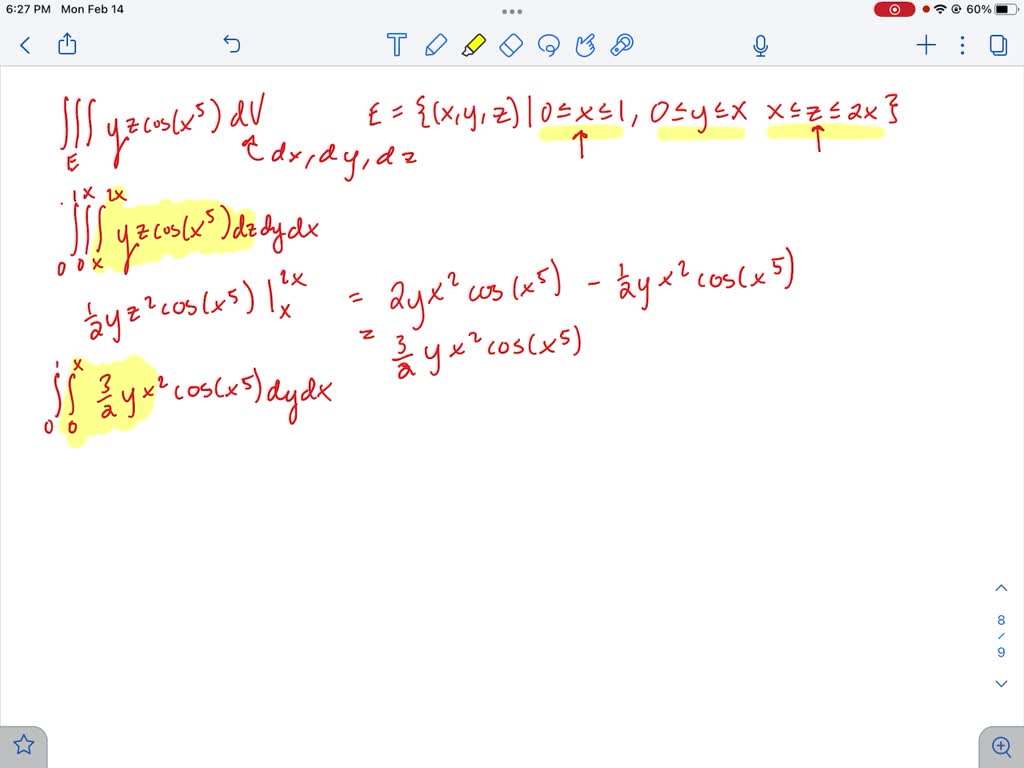 6:27 PM Mon Feb 14
60%
T
∭_E yz cos(x⁵) dV E = {(x,y,z) | 0≤x≤1, 0≤y≤x x≤z≤2x}
dx, dy, dz
∫₀¹∫₀ˣ∫ₓ²ˣ yz cos(x⁵) dz dy dx
½yz² cos(x⁵) |ₓ²ˣ = 2yx² cos(x⁵) - ½yx² cos(x⁵)
= 3/2 yx² cos(x⁵)
∫₀¹∫₀ˣ 3/2 yx² cos(x⁵) dy dx
8
/
9